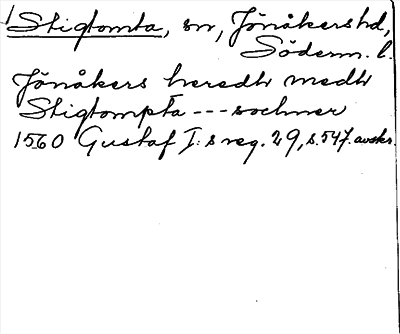 Stigtomta, sn, Jönåkers hd,
Söderm. l.
Jönåkers heredh medh
Stigtompta --- sochner
1560 Gustaf I:s reg. 29, s. 547. avskr.